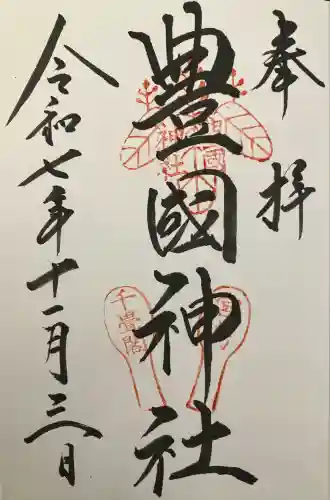 奉拝
豊國神社
令和七年十一月三日
千畳閣